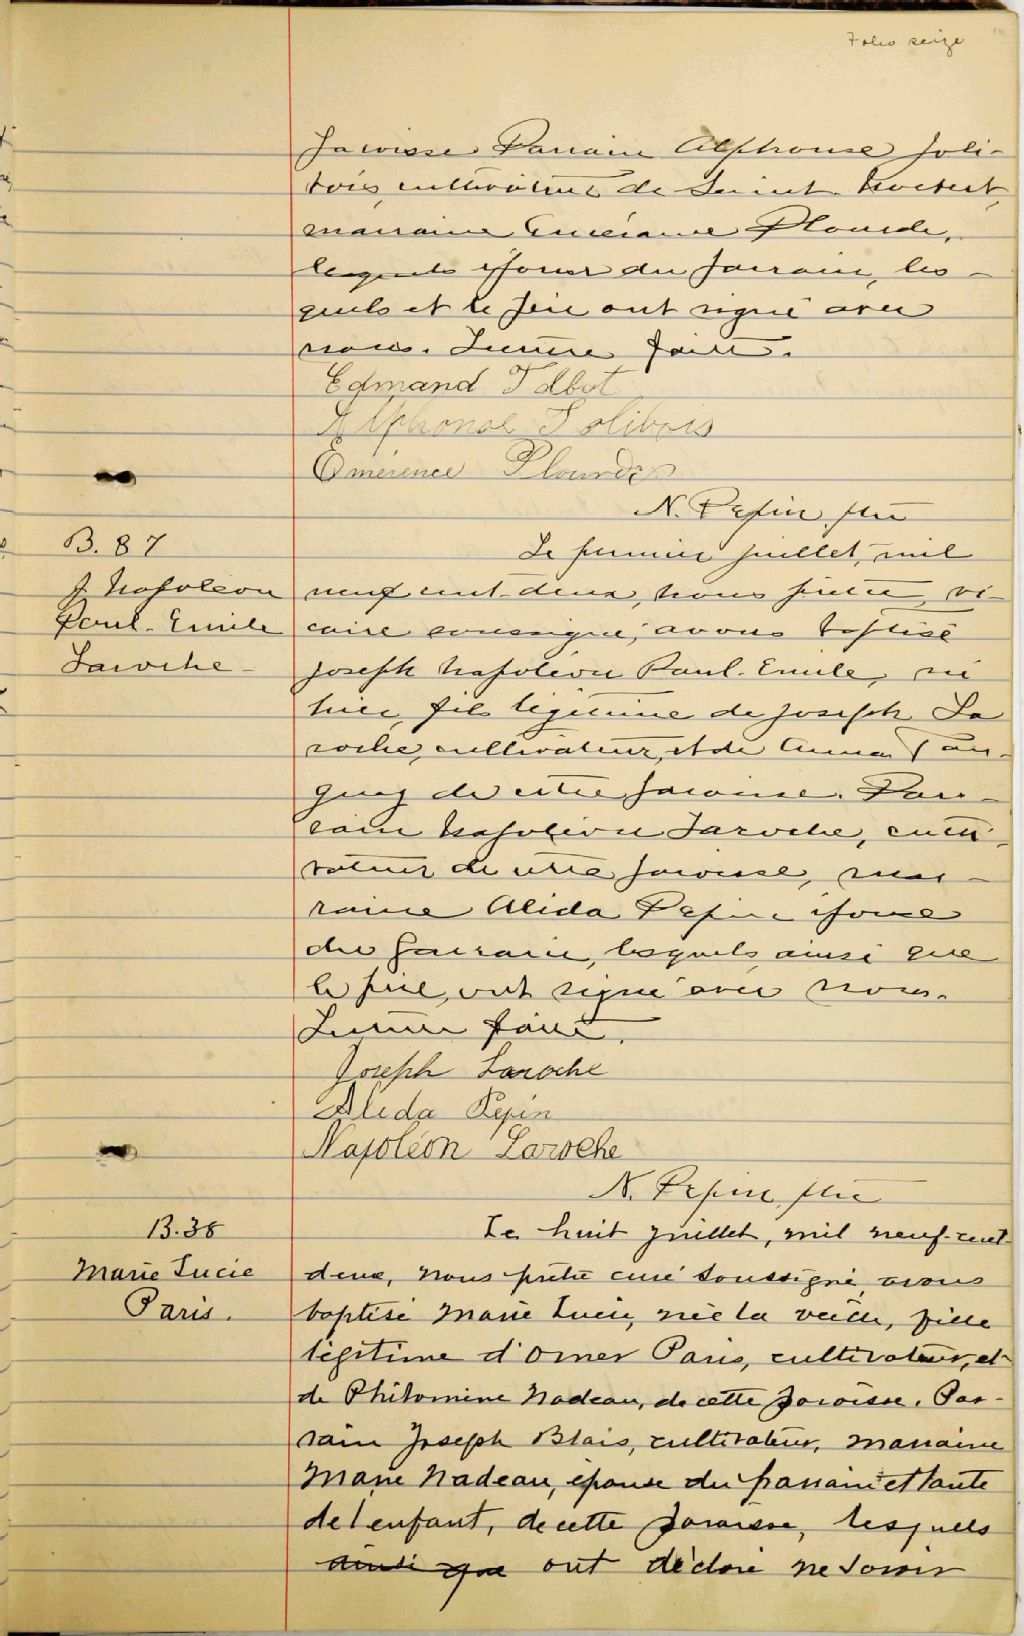 Folio seize
paroisse Parrain Alphonse Joli-
bois, cultivateur de Saint-Norbert,
marraine Emérence Plourde,
lesquels épouse du parrain, les-
quels et le père ont signé avec
nous. Lecture faite.
Edmand Talbot
Alphonse Jolibois
Emérence Plourde
N. Pepin ptre
B. 87
J. Napoléon
Paul-Emile
Laroche
Le premier juillet, mil
neuf cent-deux, nous prêtre vi-
caire soussigné, avons baptisé
Joseph Napoléon Paul-Emile, né
hier, fils légitime de Joseph La
roche, cultivateur, et de Anna Tan-
guay de cette paroisse. Par-
rain Napoléon Laroche, culti-
vateur de cette paroisse, mar-
raine Alida Pepin épouse
du parrain, lesquels ainsi que
le père, ont signé avec nous.
Lecture faite.
Joseph Laroche
Alida Pepin
Napoléon Laroche
N. Pepin ptre
B. 38
Marie Lucie
Paris.
Le huit juillet, mil neuf-cent-
deux, nous prêtre curé soussigné, avons
baptisé Marie Lucie, née la veille, fille
légitime d'Omer Paris, cultivateur, et
de Philomine Nadeau, de cette paroisse. Par-
rain Joseph Blais, cultivateur, marraine
Marie Nadeau, épouse du parrain et tante
de l'enfant, de cette paroisse, lesquels
ainsi que ont déclaré ne savoir